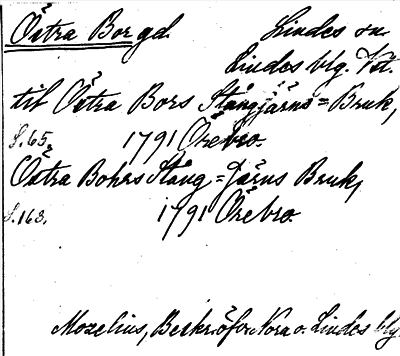 Östra Bor gd. Lindes sn.
Lindes blg. Vst.
till Östra Bors Stångjärns=Bruk,
S.65. 1791 Örebro.
Östra Bohrs Stång=Järns Bruk,
S.163. 1791 Örebro.
Mozelius, Beskr. öfver Nora o. Lindes blg.